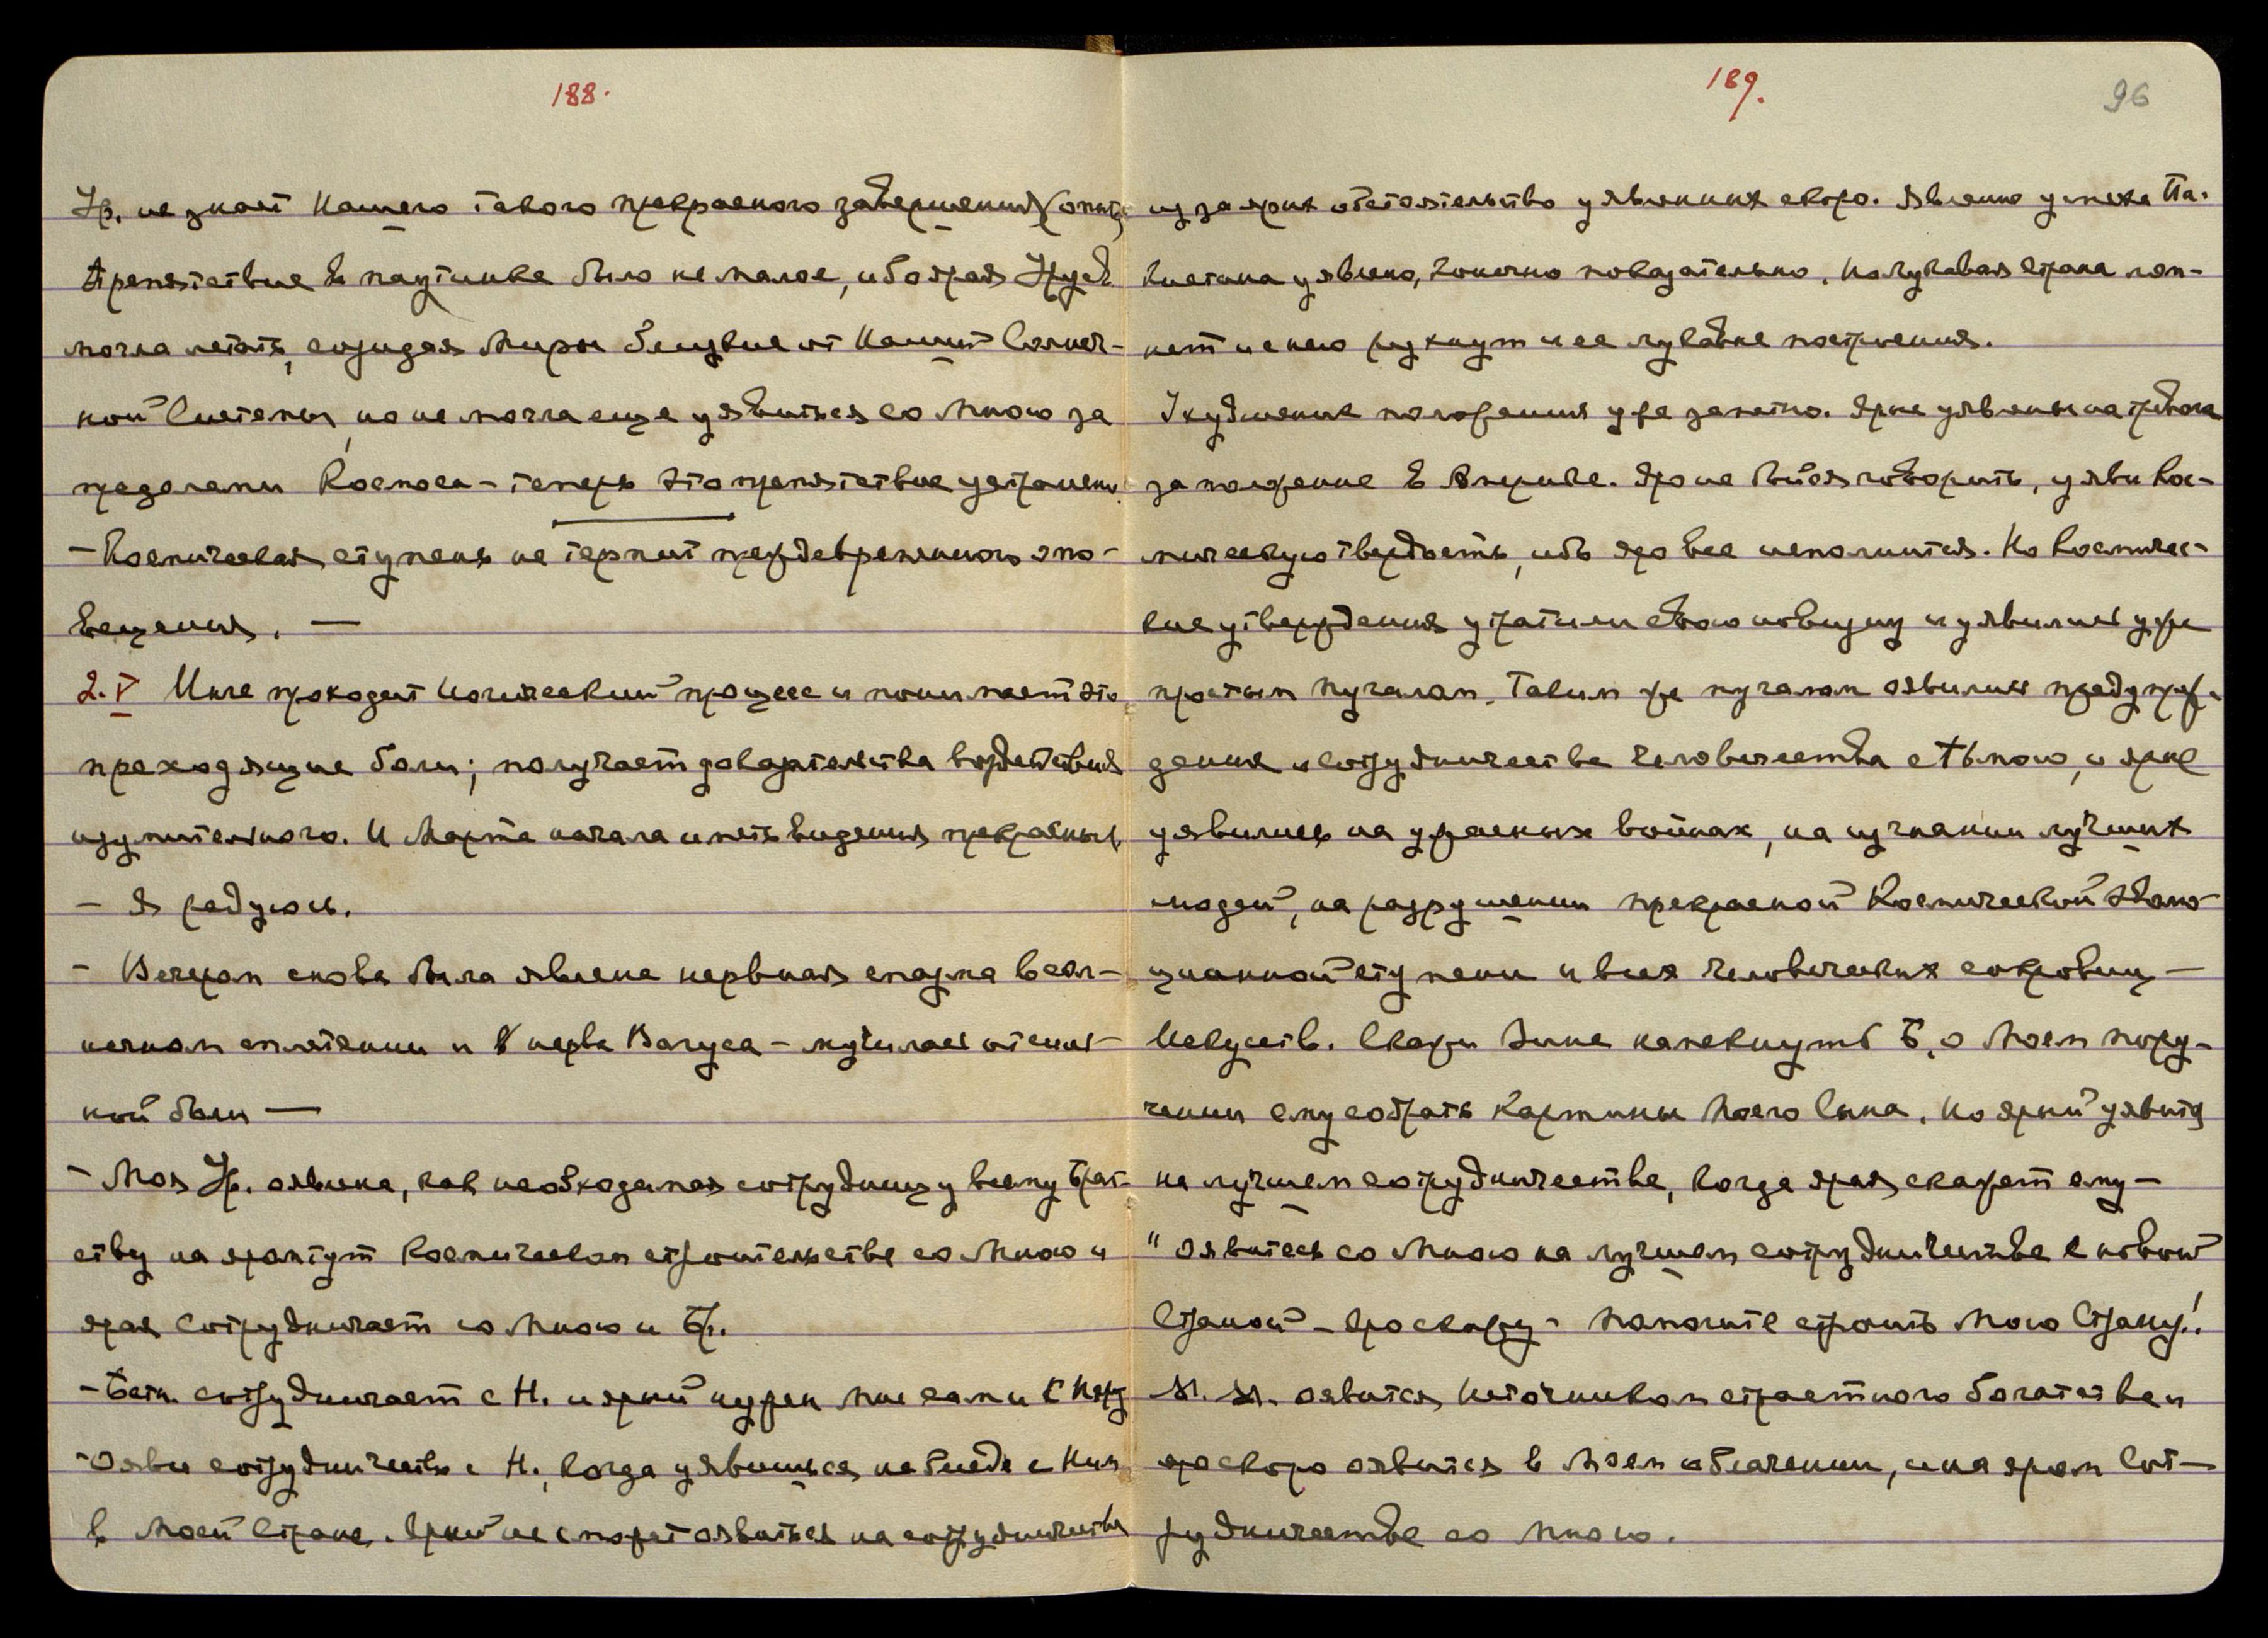 188.
Ур. не знает Нашего такого прекрасного завершения (опыта)
Препятствие в паутинке было не малое, ибо ярая Урус.
могла летать, созидая Миры близкие от Нашей Солнеч-
ной Системы, но не могла еще уявиться со Мною за
пределами Космоса – теперь это препятствие устранено.
– Космическая ступень не терпит преждевременного опо-
вещения. –
2. V Инге проходит йогический процесс и понимает это
преходящие боли; получает доказательства воздействия
изумительного. И Марта начала иметь видения прекрасные,
– Я радуюсь.
– Вечером снова была явлена нервная спазма в сол-
нечном сплетении и в нерве Вагуса – мучилась от силь-
ной боли –
– Моя Ур. оявлена, как необходимая сотрудница у всему Брат-
ству на яром тут космическом строительстве со Мною и
ярая Сотрудничает со Мною и Бр.
– Бстн. сотрудничает с Н. и ярый нужен Мне самим с
– Ояви сотрудничество с Н., когда уявишься на беседе с Ним
в Моей Стране. Ярый не сможет оявиться на сотрудничестве
189.
96
из за ярых обстоятельств уявленных скоро. Явление успеха Па-
кистана уявлено, конечно показательно. Но лукавая страна лоп-
нет и с нею рухнут и ее лукавые построения.
Ухудшение положения уже заметно. Ярые уявлены на тревоге
за положение в Америке. Яро не бойся говорить, уяви Кос-
мическую твердость, ибо яро все исполнится. Но Космичес-
кие утверждения утратили свою новизну и уявились уже
простым пугалом. Таким же пугалом оявились предупреж-
дения о сотрудничестве человечества с тьмою, и ярые
уявились на ужасных войнах, на изгнании лучших
людей, на разрушении прекрасной Космической Эволю-
ционной ступени и всех человеческих сокровищ –
Искусств. Скажи Зине намекнуть Б. о Моем пору-
чении ему собрать Картины Моего Сына. Но ярый уявится
на лучшем сотрудничестве, когда ярая скажет ему –
"Оявитесь со Мною на лучшем сотрудничестве с новой
Страной – Яро скажу – Помогите строить Мою Страну!"
М. М. оявится Источником страстного богатства и
яро скоро оявится в Моем облачении, и на яром Сот-
рудничестве со Мною.